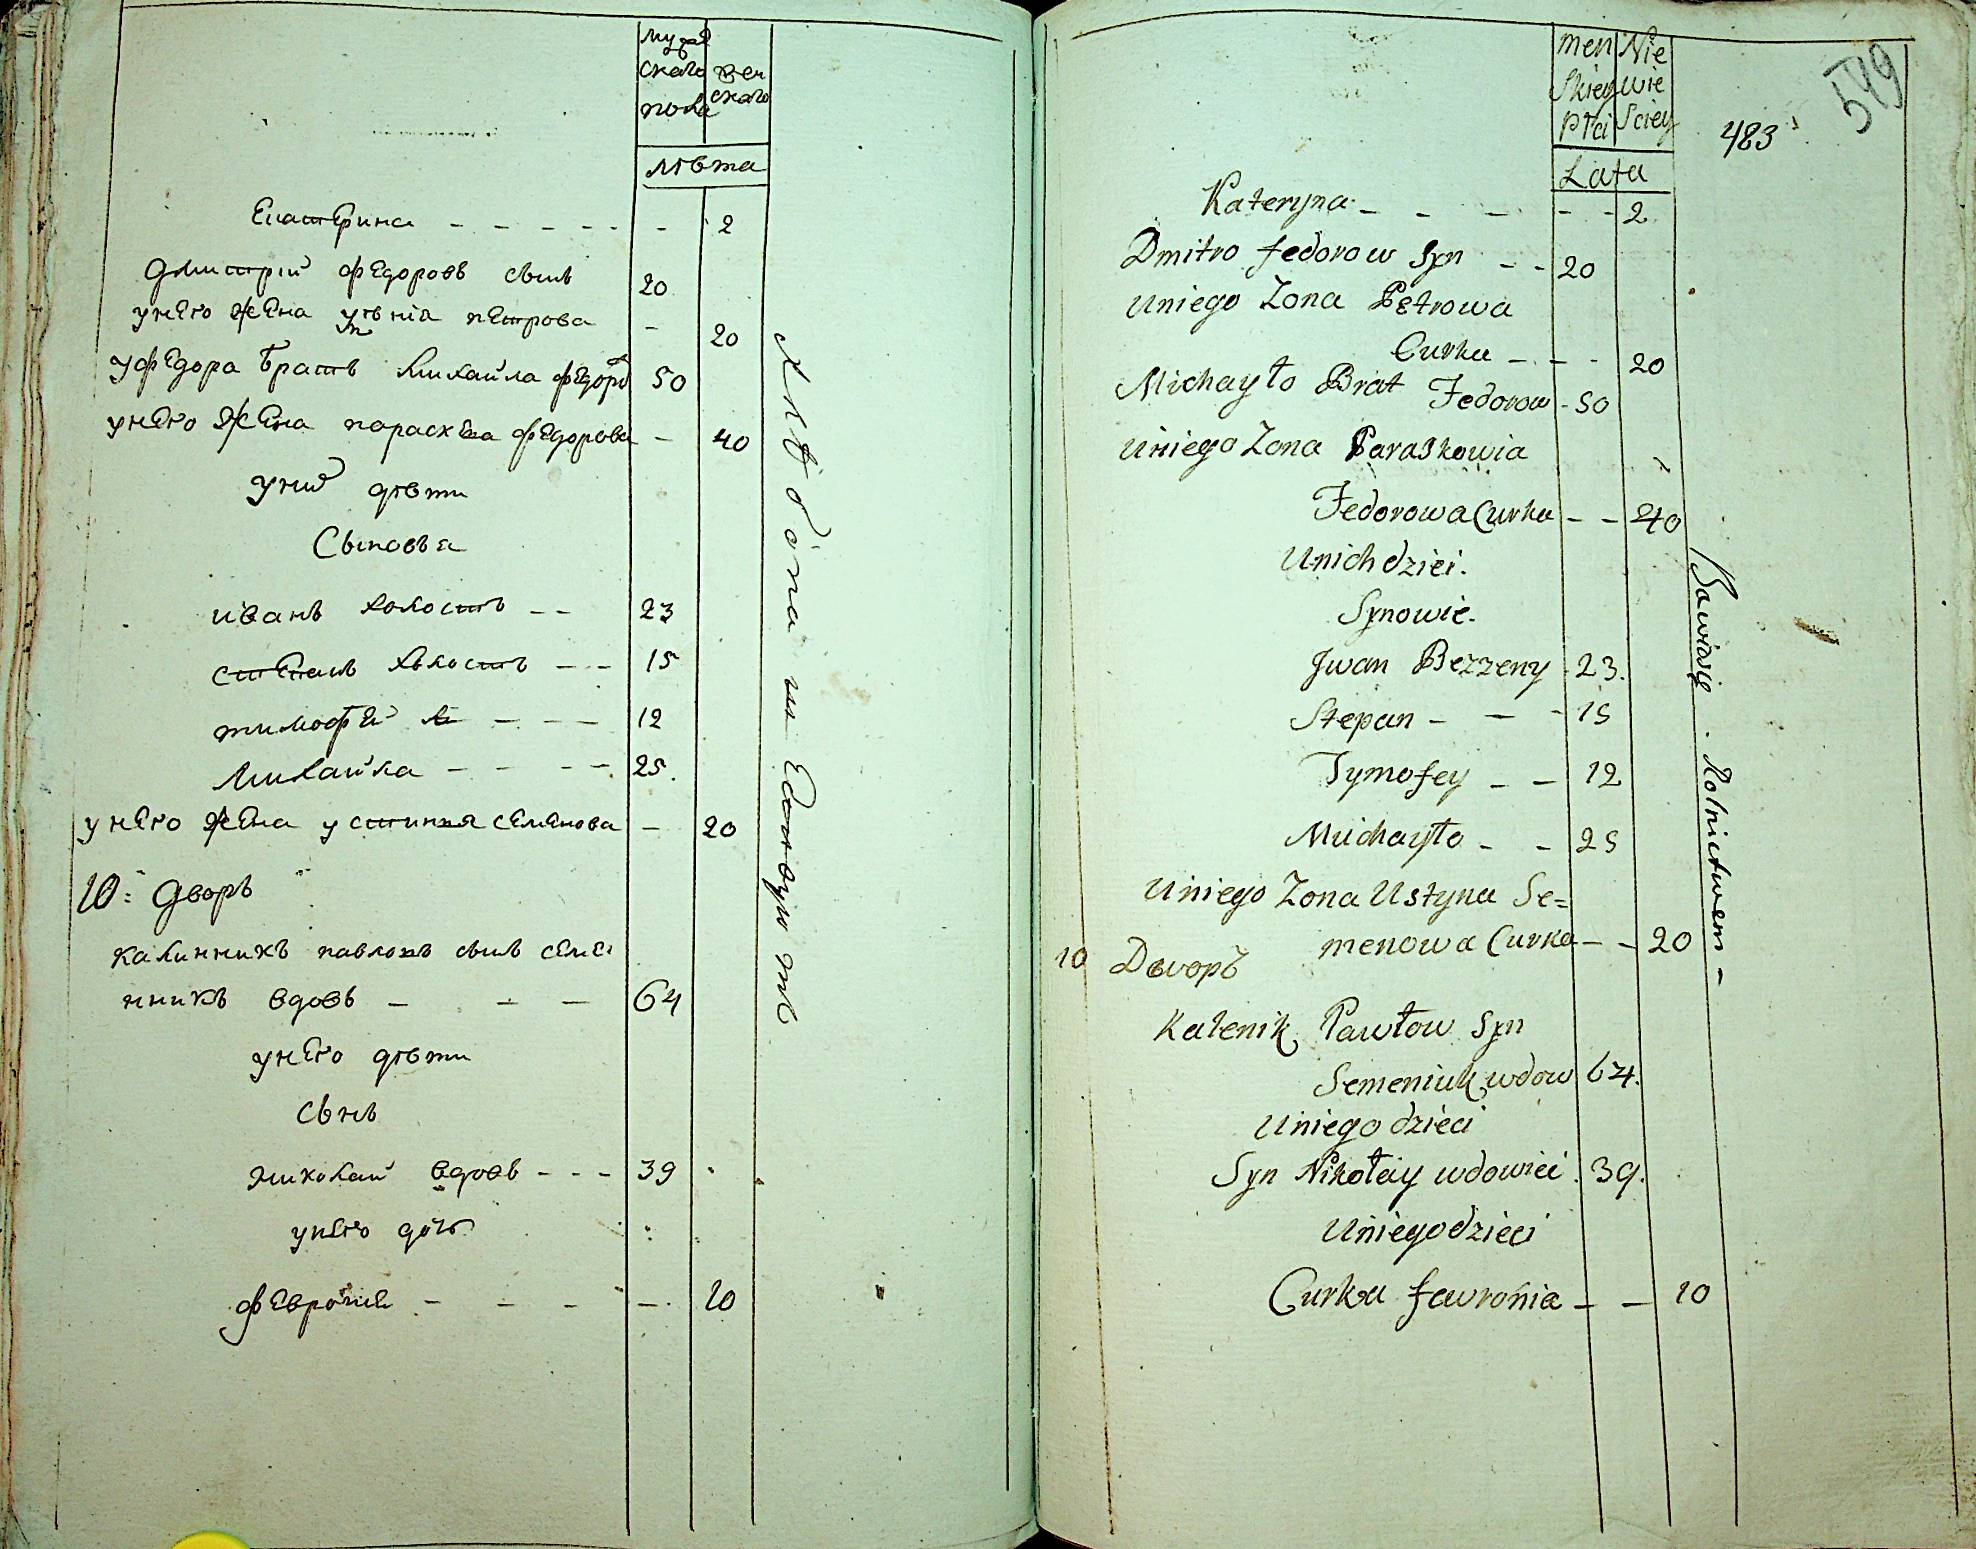 мужес
скаго жен
пола скаго
лѣта
Екатерина - - - - - - 2
Дмитрій федоровъ сынъ 20
унего жена петрова - 20
уфедора братъ михайла федоро 50
унего жена параскева федорова - 40
унихъ дѣти
Сыновья
иванъ холостъ - - 23
степанъ холостъ - - 15
тимофей - - - 12
михайла - - - - 25.
унего жена устинья семенова - 20
10: Дворъ
калинникъ павловъ сынъ семе
нникъ вдовъ - - - 64
унего дѣти
сынъ
николай вдовъ - - - 39
унего дочь
февронія - - - - 10
хлебопашествуютъ
men Nie
skiey wie
Płci Sciey
Lata
483
549
Kateryna - - - - - 2
Dmitro fedorow Syn - - 20
Uniego Zona Petrowa
Curka - - - 20
Michayło Brat Fedorow - 50
Uniego Zona Paraskowia
Fedorowa Curka - - 40
Unich dzieci.
Synowie.
Jwan Bezzeny - 23.
Stepan - - - 15
Tymofey - - 12
Michayło - - 25
Uniego Zona Ustyna Se=
menowa Curka - - 20
10 Дворъ
Kalenik Pawłow Syn
Semeniuk wdow 64.
Uniego dzieci
Syn Nikołay wdowiec. 39.
Uniego dzieci
Curka fewronia - - 10
Bawiąsię Rolnictwem -